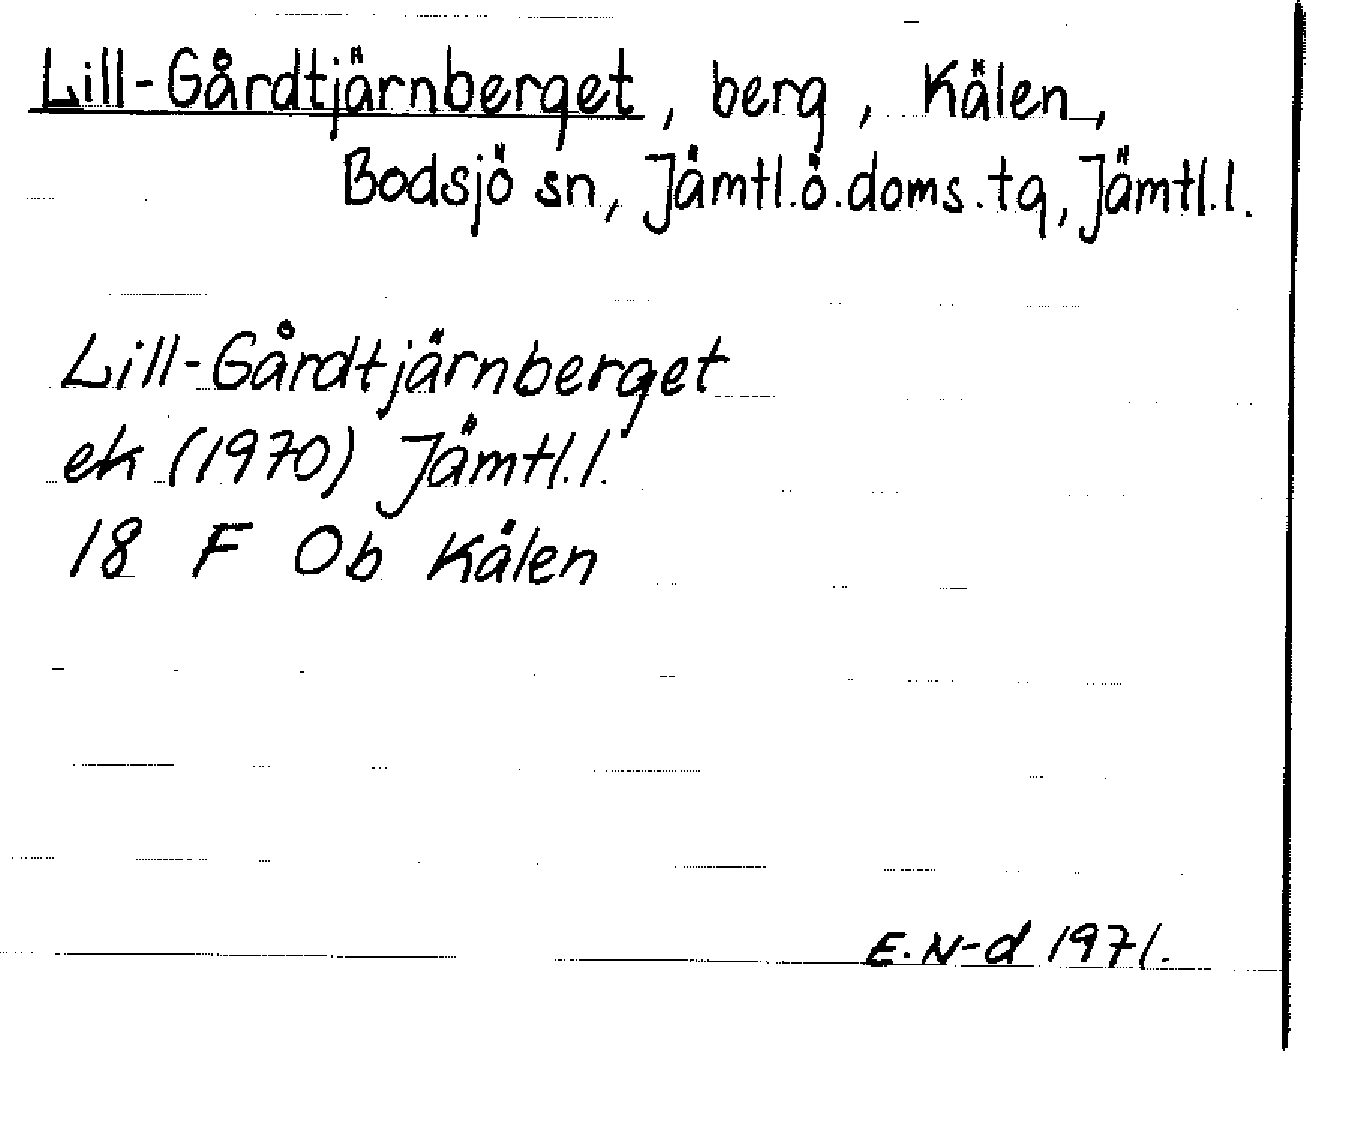 Lill-Gårdtjärnberget, berg, Kälen,
Bodsjö sn, Jämtl.ö.doms.tg, Jämtl.l.
Lill-Gårdtjärnberget
ek (1970) Jämtl.l.
18 F Ob Kälen
E.N-d 1971.